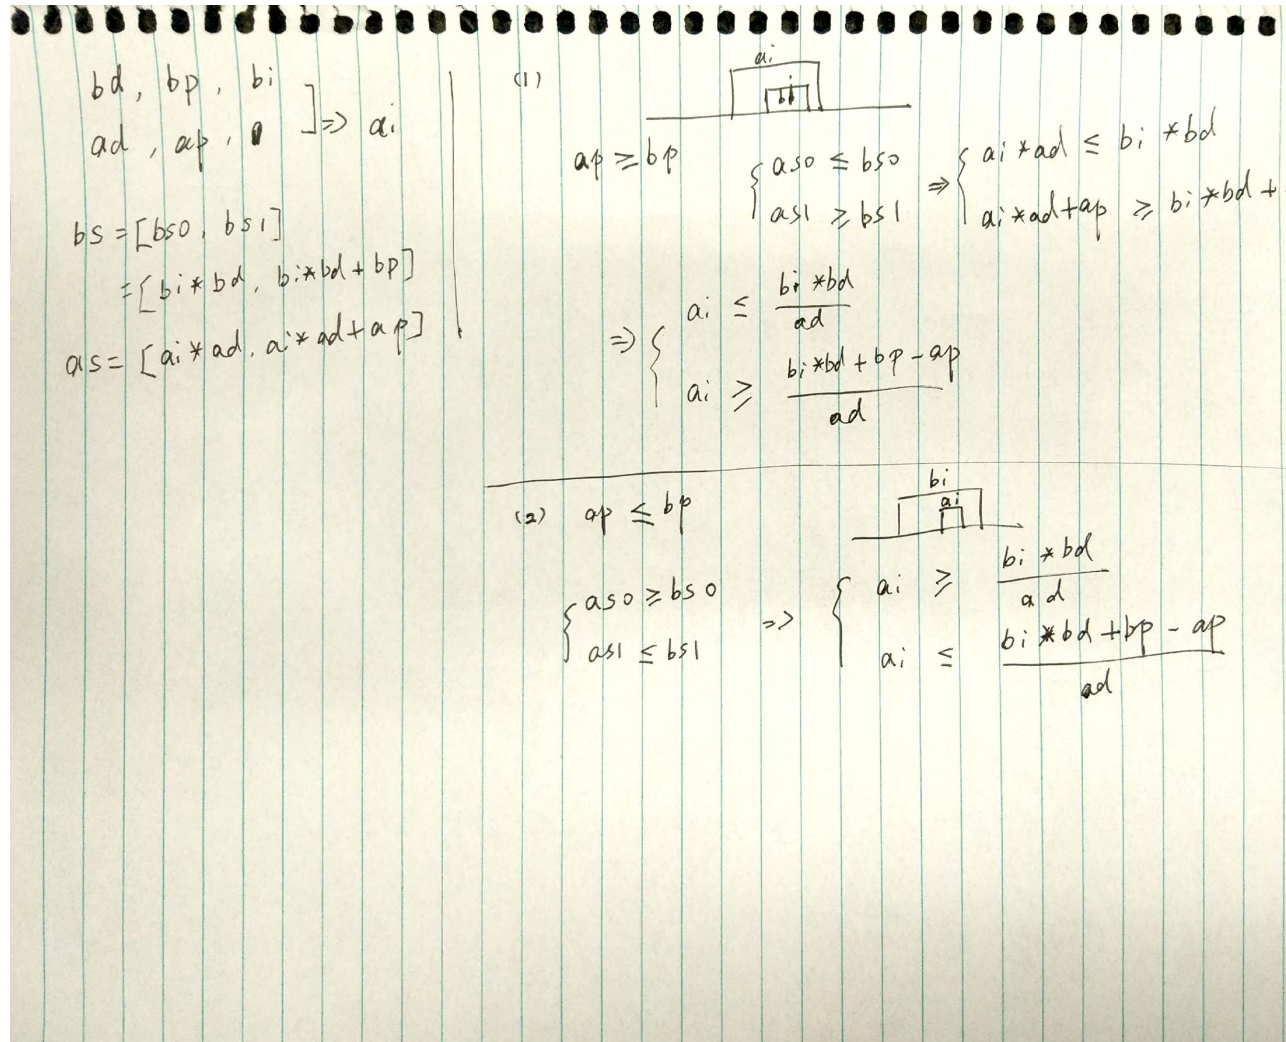 bd, bp, bi
ad, ap, ] => ai
bs = [bs0, bs1]
= [bi*bd, bi*bd+bp]
as = [ai*ad, ai*ad+ap]
(1)
ai
bi
ap ≥ bp
{ as0 ≤ bs0
as1 ≥ bs1
=> { ai*ad ≤ bi*bd
ai*ad+ap ≥ bi*bd+
=> { ai ≤ bi*bd / ad
ai ≥ bi*bd+bp-ap / ad
(2) ap ≤ bp
bi
ai
{ as0 ≥ bs0
as1 ≤ bs1
=> { ai ≥ bi*bd / ad
ai ≤ bi*bd+bp-ap / ad